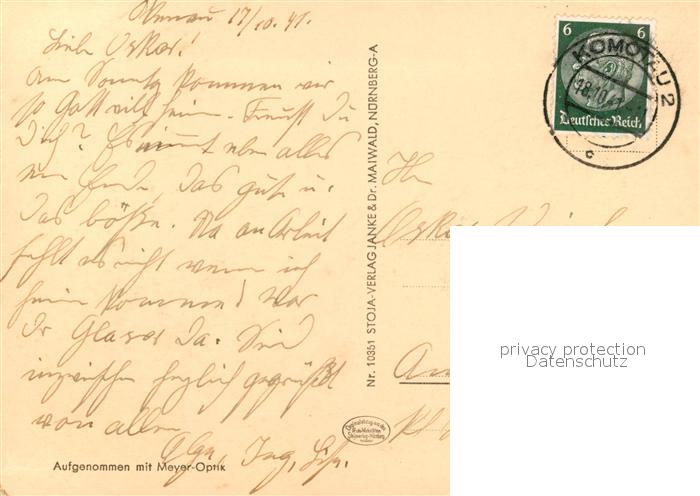 17/10.41.
Liebe Oskar!
Am Sonntag kommen wir
so Gott will heim. Freust Du
Dich? Es nimmt eben alles
ein Ende, das gute u.
das böse. Na an Arbeit
fehlt es nicht wenn ich
heim komme! War
Dr Glaser da. Seid
inzwischen herzlich gegrüßt
von allen
Olga, Ing,
Aufgenommen mit Meyer-Optik
Nr. 10351 STOJA-VERLAG JANKE & Dr. MAIWALD, NÜRNBERG-A
6 6
Deutsches Reich
KOMOTAU 2
18.10.41
c
Oskar
privacy protection
Datenschutz